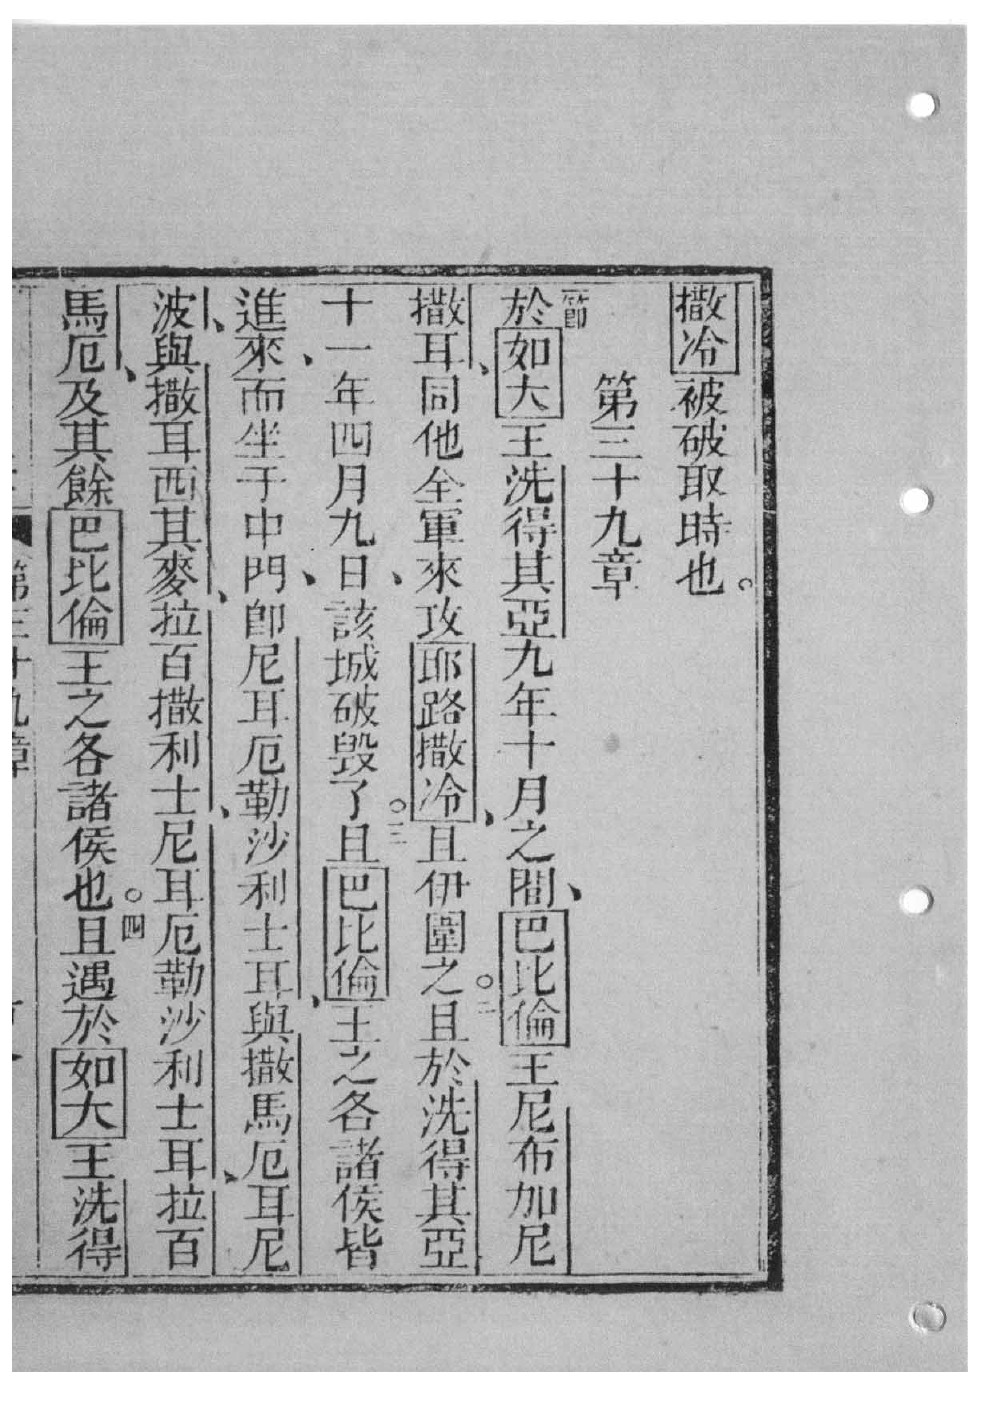 撒冷被破取時也。
第三十九章
節於如大王洗得其亞九年十月之間、巴比倫王尼布加尼
撒耳、同他全軍來攻耶路撒冷、且伊圍之。二且於洗得其亞
十一年四月九日、該城破毀了。三且巴比倫王之各諸侯皆
進來、而坐于中門、卽尼耳厄勒沙利士耳、與撒馬厄耳尼
波、與撒耳西其麥、拉百撒利士、尼耳厄勒沙利士耳、拉百
馬厄、及其餘巴比倫王之各諸侯也。四且遇於如大王洗得
第三十九章